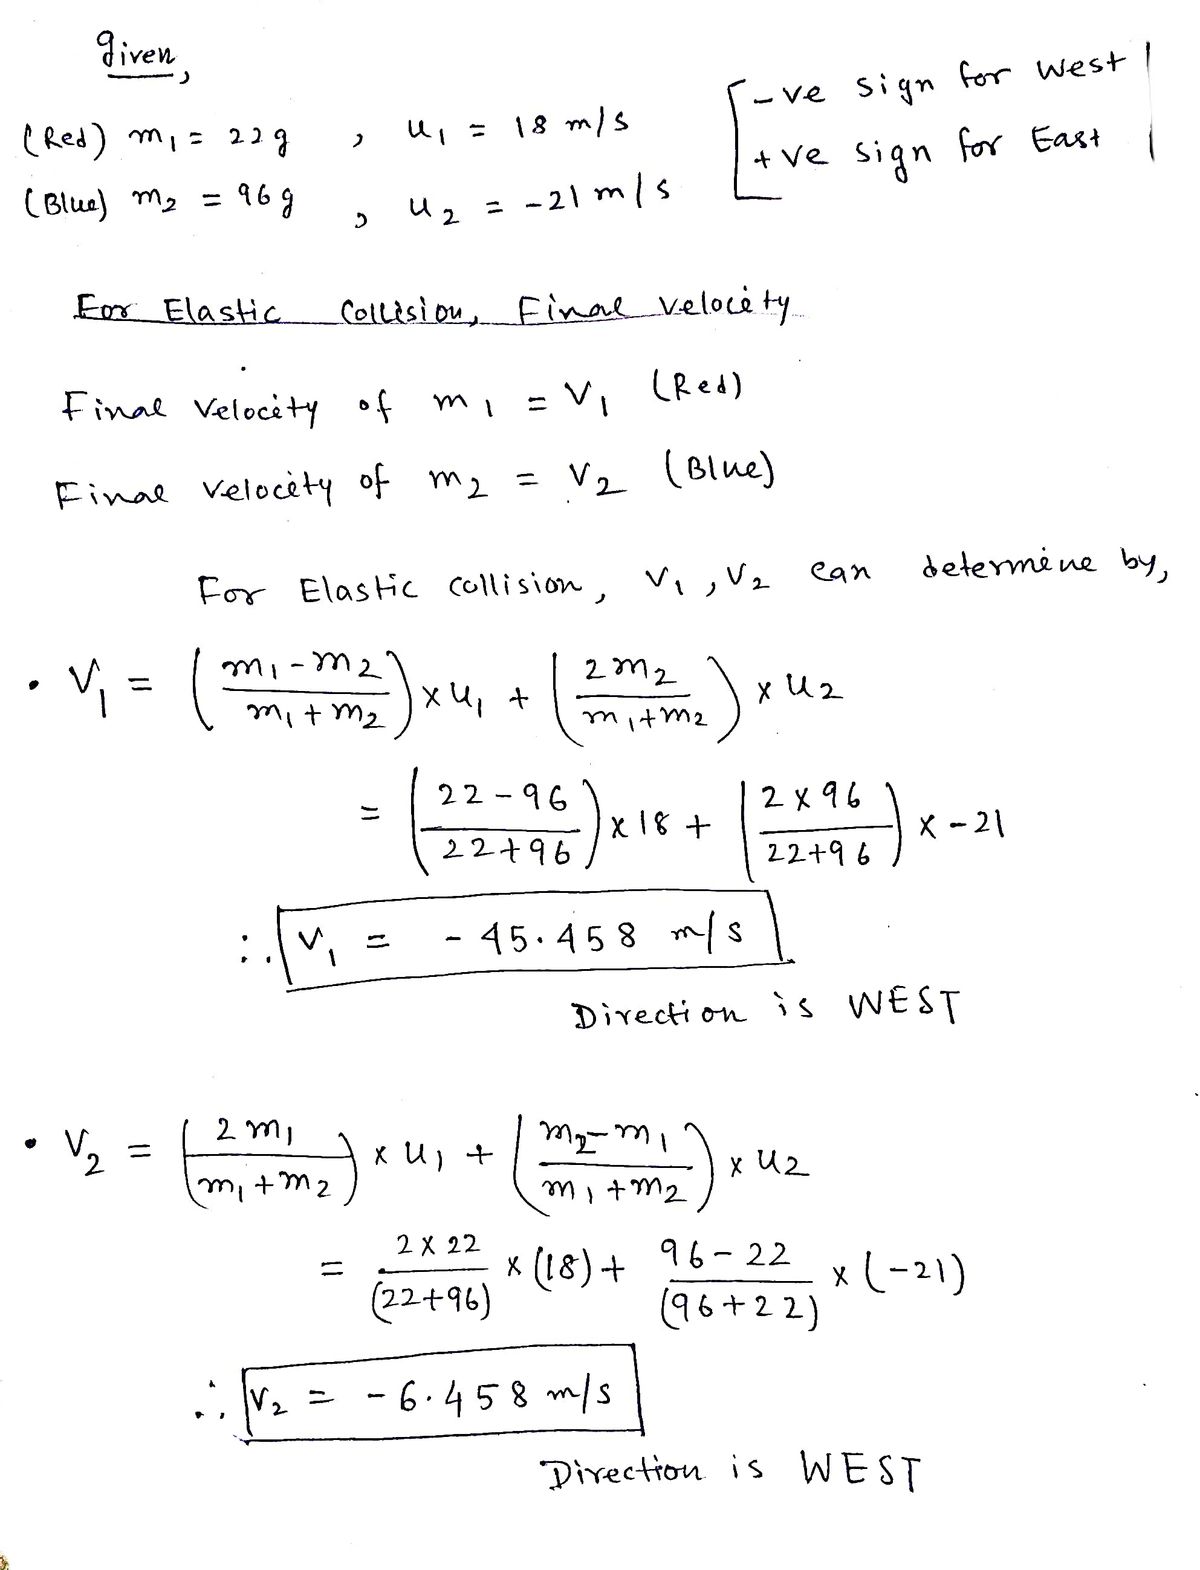 given,
(Red) m₁ = 22g , u₁ = 18 m/s
(Blue) m₂ = 96g , u₂ = -21 m/s
[-ve sign for west
+ve sign for East
For Elastic Collision, Final velocity
Final velocity of m₁ = V₁ (Red)
Final velocity of m₂ = V₂ (Blue)
For Elastic collision, V₁, V₂ can determine by,
• V₁ = ((m₁-m₂)/(m₁+m₂)) × u₁ + (2m₂/(m₁+m₂)) × u₂
= ((22-96)/(22+96)) × 18 + ((2×96)/(22+96)) × -21
∴ V₁ = - 45.458 m/s
Direction is WEST
• V₂ = (2m₁/(m₁+m₂)) × u₁ + ((m₂-m₁)/(m₁+m₂)) × u₂
= (2×22)/(22+96) × (18) + (96-22)/(96+22) × (-21)
∴ V₂ = -6.458 m/s
Direction is WEST